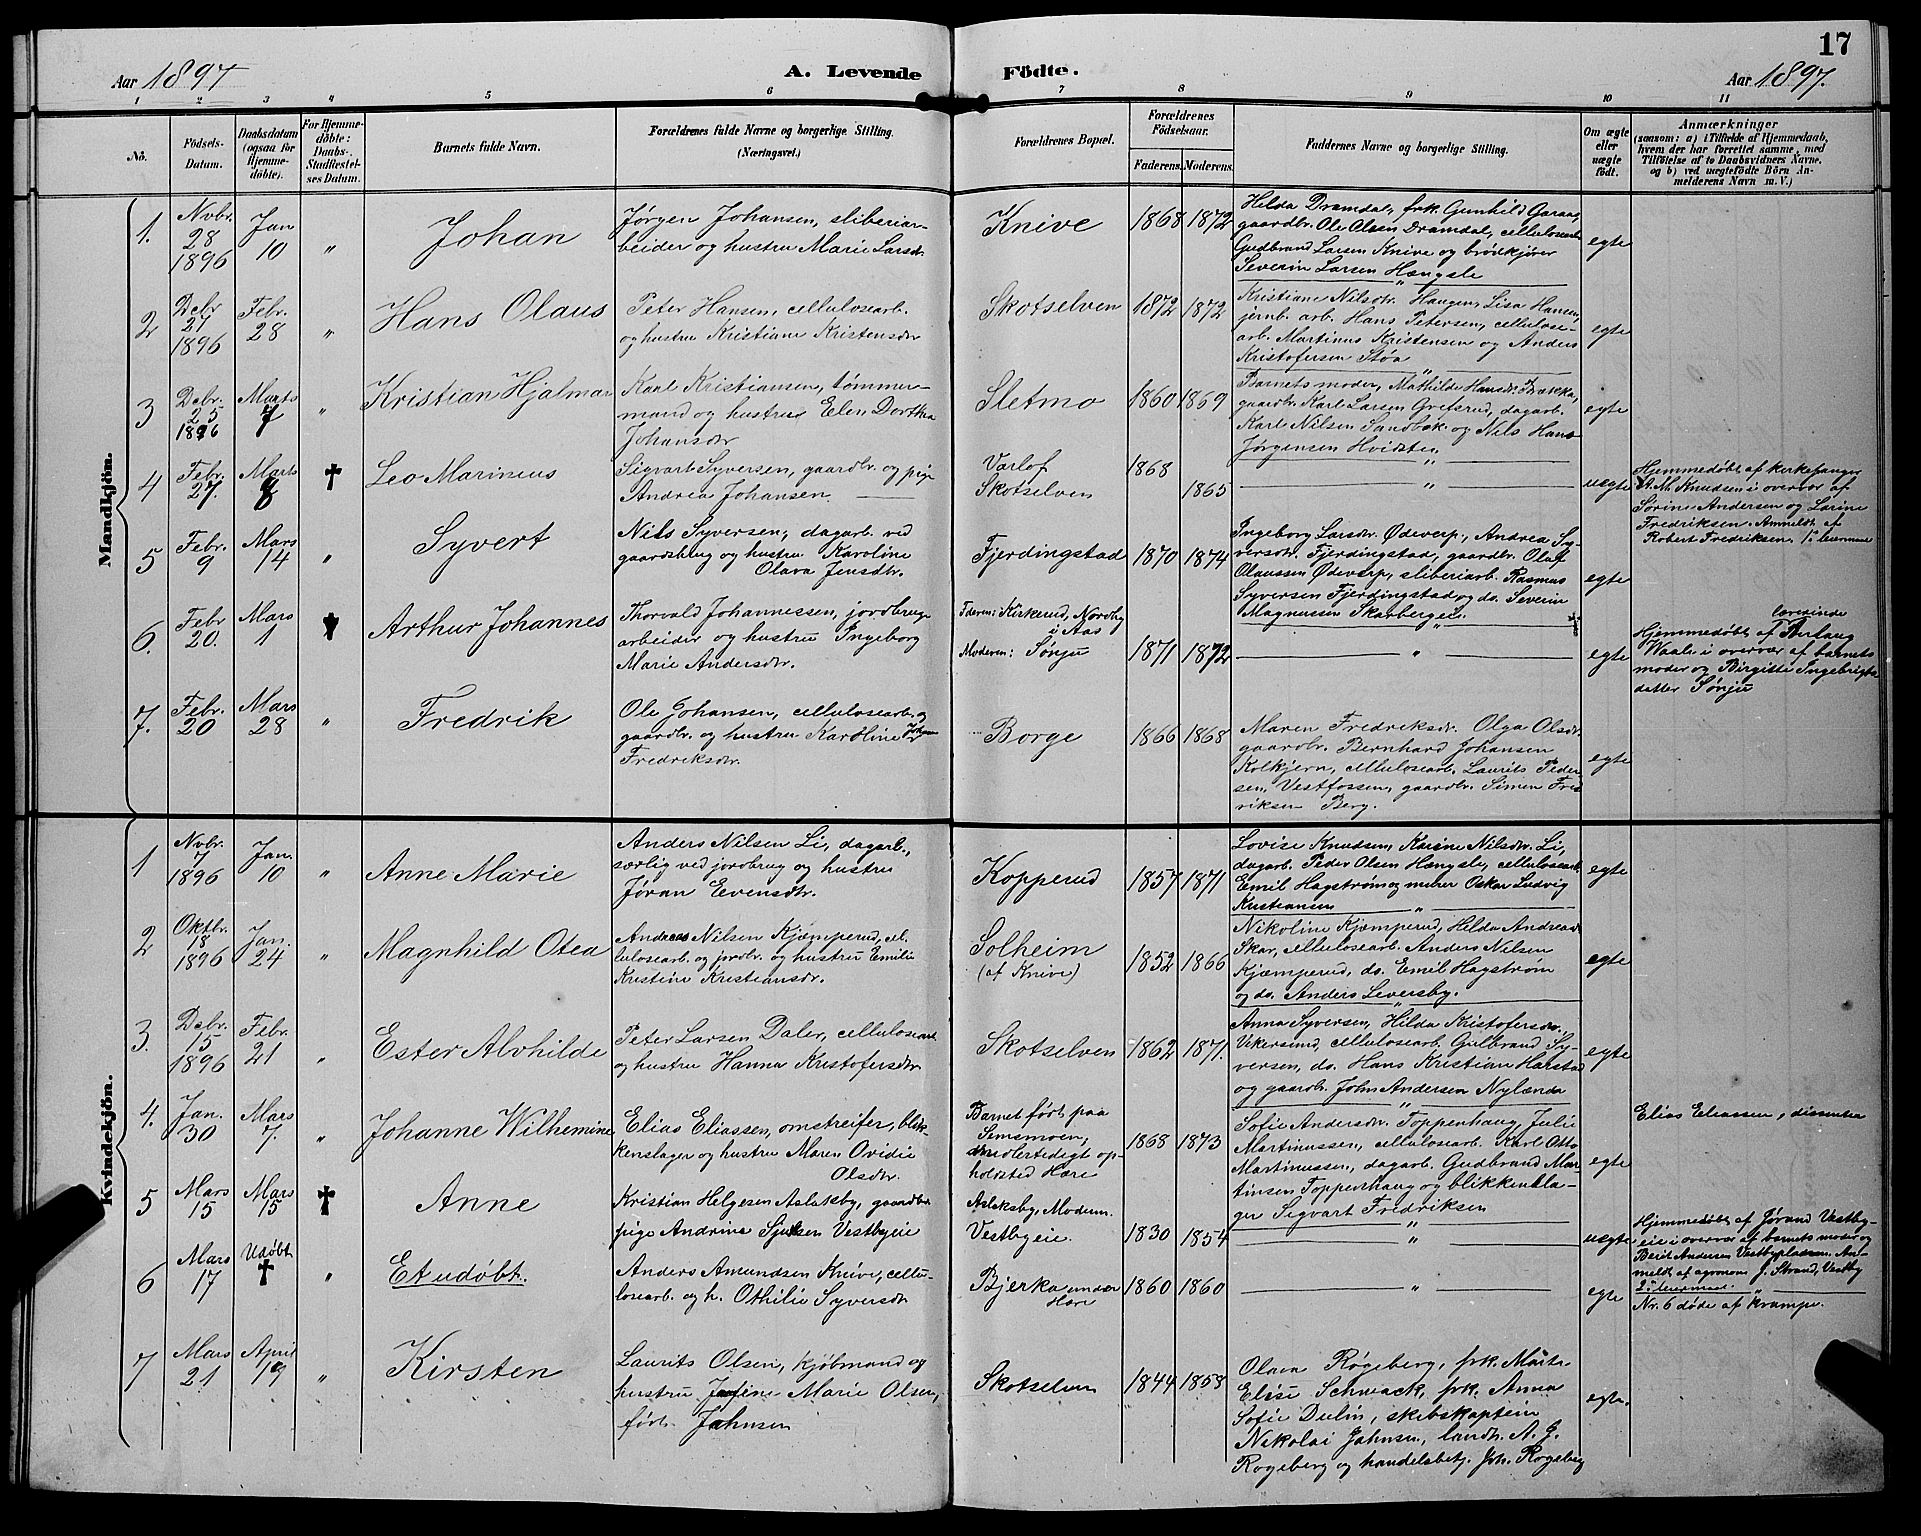 17
Aar 1897
A. Levende Födte.
Aar 1897.
1 2 3 4 5 6 7 8 9 10 11
No.
Födsels-
Datum.
Daabsdatum
(ogsaa for
Hjemme-
döbte).
For Hjemme-
döbte:
Daabs-
Stadfæstel-
ses Datum.
Barnets fulde Navn.
Forældrenes fulde Navne og borgerlige Stilling.
(Næringsvei.)
Forældrenes Bopæl.
Forældrenes
Födselsaar.
Faderens. Moderens.
Faddernes Navne og borgerlige Stilling.
Om ægte
eller
uægte
födt.
Anmærkninger
(saasom: a) i Tilfælde af Hjemmedaab,
hvem der har forrettet samme, med
Tilföielse af to Daabsvidners Navne,
og b) ved uægtefödte Börn An-
melderens Navn m. V.)
Mandkjön.
1.
Novbr.
28
1896
Jan
10
"
Johan
Jørgen Johansen, sliberiar-
beider og hustru Marie Larsdr.
Knive
1868 1872
Hilda Dramdal, frk. Gunhild Garaas
gaardbr. Ole Olsen Dramdal, cellulosearb.
Gudbrand Larsen Knive og brödkjører
Severin Larsen Hængsle
egte
2
Debr
21
1896
Febr.
28
"
Hans Olaus
Peter Hansen, cellulosearb.
og hustru Kristiane Kristensdr
Skotselven
1872 1872
Kristiane Nilsdr. Haugen, Lisa Hansen,
jernb. arb. Hans Petersen, cellulose-
arb. Martinus Kristensen og Anders
Kristofersen Støa
egte
3
Debr.
25
1896
Marts
7
"
Kristian Hjalmar
Karl Kristiansen, tømmer-
mand og hustru Elen Dorthea
Johansdr
Sletmo
1860 1869
Barnets moder, Mathilde Hansdr. Brækka,
gaardbr. Karl Larsen Grefsrud, dagarb.
Karl Nilsen Sandbæk og Nils Hans
Jørgensen Hvidsten
egte
4
Febr.
27.
Marts
8
†
Leo Marinius
Sigvart Syversen, gaardbr. og pige
Andrea Johansen
Varlof
Skotselven
1868
1865
"
uægte
Hjemmedøbt af kirkesanger
A. M. Knudsen i overvær af
Sørine Andersen og Larine
Fredriksen. Anmeldt af
Robert Fredriksen. 1ste leiermaal
5
Febr.
9
Mars
14
"
Syvert
Nils Syversen, dagarb. ved
gaardsbrug og hustru Karoline
Olava Jensdtr.
Fjerdingstad
1870 1874
Ingeborg Larsdr. Ødeverp, Andrea Sy-
versdr. Fjerdingstad, gaardbr. Olaf
Olaussen Ødeverp, sliberiarb. Rasmus
Syversen Fjerdingstad og do. Severin
Magnussen Skarberget.
egte
6.
Febr
20.
Mars
1
†
Arthur Johannes
Thorvald Johannessen, jordbrugs-
arbeider og hustru Ingeborg
Marie Andersdr.
Fderen: Kirkerud, Nordby
i Aas
Moderen: Sønju
1871 1872
"
egte
lærerinde
Hjemmedøbt af
Waaler i overvær af barnets
moder og Birgitte Ingebrigts-
datter Sønju
7.
Febr.
20
Mars
28
"
Fredrik
Ole Johansen, cellulosearb. og
gaardbr. og hustru Karoline Johanne
Fredriksdr
Borge
1866 1868
Maren Fredriksdr. Olga Olsdr.
gaardbr. Bernhard Johansen
Kolkjern, cellulosearb. Laurits Peder-
sen, Vestfossen, gaardbr. Simen Fred-
riksen Berg.
egte
Kvindekjön.
1
Novbr.
7
1896
Jan.
10
"
Anne Marie
Anders Nilsen Li, dagarb.,
særlig ved jordbrug og hustru
Jøran Evensdtr.
Kopperud
1857 1871
Lovise Knudsen, Karine Nilsdr. Li,
dagarb. Peder Olsen Hængsle, cellulosearb.
Emil Hagstrøm og murer Oskar Ludvig
Kristiansen
egte
2
Oktbr.
18
1896
Jan.
24
"
Magnhild Otea
Andreas Nilsen Kjæmperud, cel-
lulosearb. og jordbr. og hustru Emilie
Kristine Kristiansdr.
Solheim
(af Knive)
1852 1866
Nikoline Kjæmperud, Helda Andreasd.
Skar, cellulosearb. Anders Nilsen
Kjæmperud, do. Emil Hagstrøm
og do. Anders Leversby.
egte
3.
Debr.
15
1896
Febr.
21
"
Ester Alvhilde
Peter Larsen Daler, cellulosearb
og hustru Hanna Kristofersdr.
Skotselven
1862 1871.
Anna Syversen, Hilda Kristofersdr.
Vikersund, cellulosearb. Gulbrand Sy-
versen, do. Hans Kristian Harstad
og gaardb. John Andersen Nylænda
egte
4.
Jan.
30
Mars
7.
"
Johanne Wilhemine
Elias Eliassen, omstreifer, blik-
kenslager og hustru Maren Ovidie
Olsdtr.
Barnet født paa
Semsmoen,
midlertidigt op-
holdsted Hære
1868 1873
Sofie Andersdr. Toppenhaug, Julie
Martinussen, cellulosearb. Karl Otto
Martinussen, dagarb. Gudbrand Mar-
tinsen Toppenhaug og blikkensla-
ger Sigvart Fredriksen
egte
Elias Eliassen, dissenter
5
Mars
15
Mars
15
†
Anne
Kristian Helgesen Aslaksby, gaardbr.
pige Andrine Sjulsen Vestbyeie
Aslaksby, Moderen.
Vestbyeie.
1830 1854
"
uægte
Hjemmedøbt af Jørand Vestby-
eie i overvær af barnets moder og
Berit Andersen Vestbypladsen. An-
meldt af agronom J. Strand, Vestby
2det leiermaal.
6
Mars
17
Udøbt
†
"
Et udøbt.
Anders Amundsen Knive, cellu-
losearb. og h. Othilie Syversdr
Bjerka under
Hære
1860 1860
"
egte
Nr. 6 døde af krampe.
7
Mars
21
April
19
"
Kirsten
Laurits Olsen, kjøbmand og
hustru Josefine Marie Olsen,
født Jahnsen
Skotselven
1844 1858
Olava Røgeberg, frk. Marte
Elise Schwack, frk. Anna
Sofie Dulin, skibskaptein
Nikolai Jahnsen, landh. A. G.
Rogeberg og handelsbetj. Joh. Rogeberg
egte.